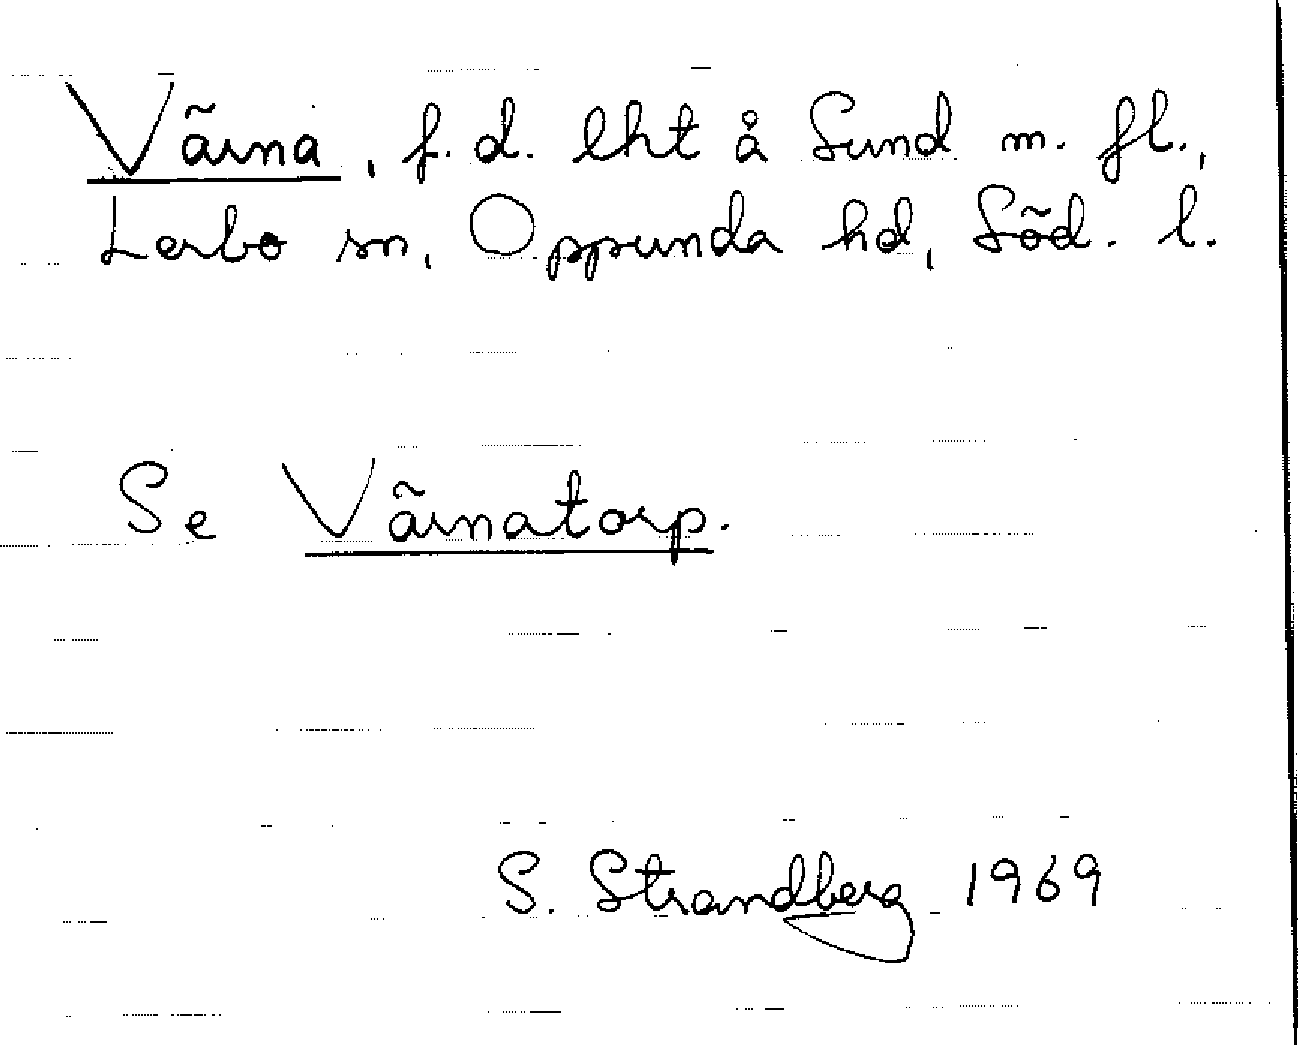 Värna, f.d. lht å Sund m. fl.,
Lerbo sn, Oppunda hd, Söd. l.
Se Värnatorp.
S. Strandberg 1969